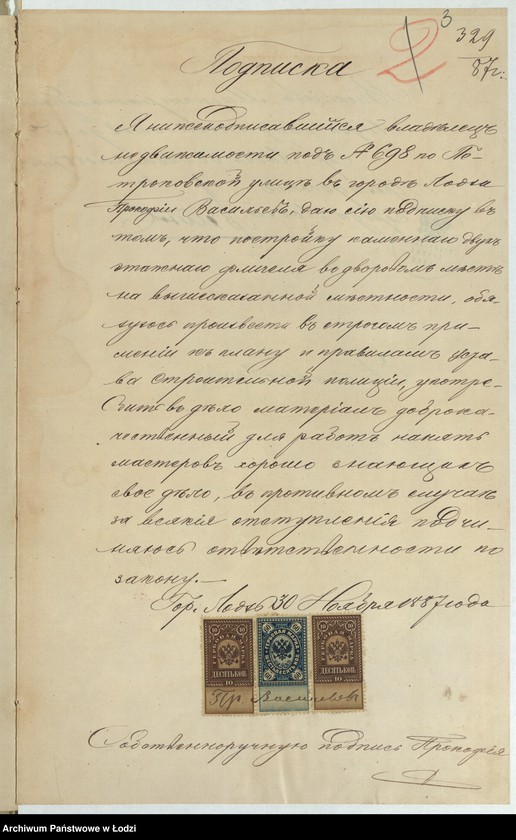 3
2
329
87 г.
Подписка
Я нижеподписавшийся владѣлецъ
недвижимости подъ № 698 по Пе-
троковской улицѣ въ городѣ Лодзи
Прокофій Васильевъ, даю сію подписку въ
томъ, что постройку каменнаго двухъ
этажнаго флигеля въ дворовомъ мѣстѣ
на вышесказанной мѣстности, обя-
зуюсь произвести въ строгомъ при-
мѣненіи къ плану и правиламъ Уста-
ва Строительной полиціи, употре-
бить въ дѣло матеріалъ доброка-
чественный для работъ нанять
мастеровъ хорошо знающихъ
свое дѣло, въ противномъ случаѣ
за всякія отступленія подчи-
няюсь отвѣтственности по
закону.—
Гор. Лодзь 30 Ноября 1887 года
ГЕРБОВАЯ МАРКА
ДЕСЯТЬ КОП.
10
60
ГЕРБОВАЯ МАРКА
ДЕСЯТЬ КОП.
10
Пр Васильевъ
Собственноручную подпись Прокофія
Archiwum Państwowe w Łodzi